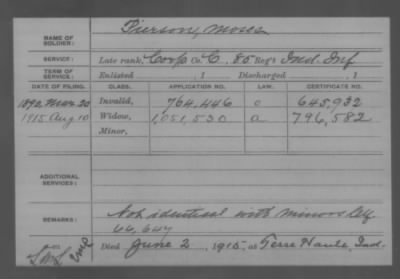 Pierson, Moses
NAME OF
SOLDIER:
SERVICE: Late rank, Corp Co. C, 85 Reg't Ind. Inf
TERM OF
SERVICE: Enlisted , 1 Discharged , 1
DATE OF FILING. CLASS. APPLICATION NO. LAW. CERTIFICATE NO.
1892 Mar. 20 Invalid, 764,446 c 645,932
1915 Aug 10 Widow, 1,051,530 a 796,582
Minor,
ADDITIONAL
SERVICES:
REMARKS: Not identical with Minors Ctf.
44,647
Died June 2, 1915, at Terre Haute, Ind.